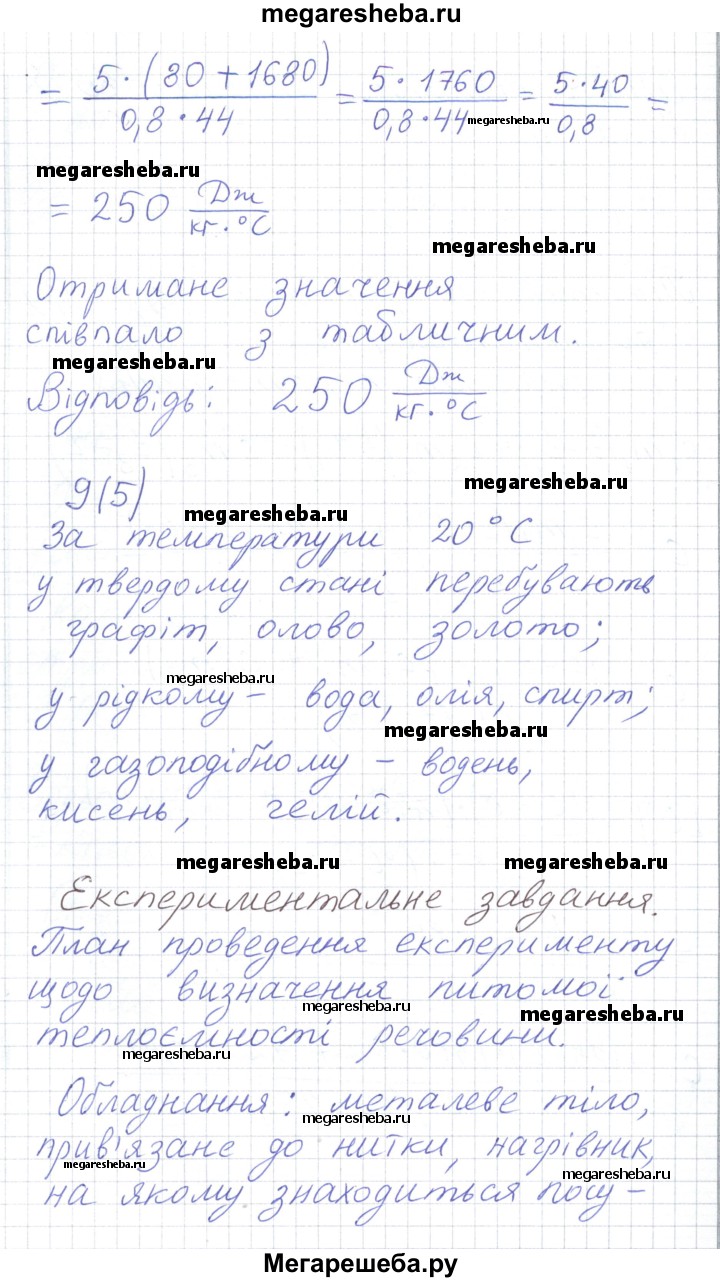 megaresheba.ru
= 5·(80+1680) / 0,8·44 = 5·1760 / 0,8·44 = 5·40 / 0,8 =
megaresheba.ru
megaresheba.ru
= 250 Дж / кг·°С
megaresheba.ru
Отримане значення
співпало з табличним.
megaresheba.ru
Відповідь: 250 Дж / кг·°С
megaresheba.ru
9(5)
megaresheba.ru
За температури 20°С
у твердому стані перебувають
графіт, олово, золото;
megaresheba.ru
у рідкому – вода, олія, спирт;
megaresheba.ru
у газоподібному – водень,
кисень, гелій.
megaresheba.ru megaresheba.ru
Експериментальне завдання.
План проведення експерименту
щодо визначення питомої
megaresheba.ru megaresheba.ru
теплоємності речовини.
megaresheba.ru
Обладнання: металеве тіло,
megaresheba.ru
прив'язане до нитки, нагрівник,
megaresheba.ru megaresheba.ru
на якому знаходиться посу-
Мегарешеба.ру